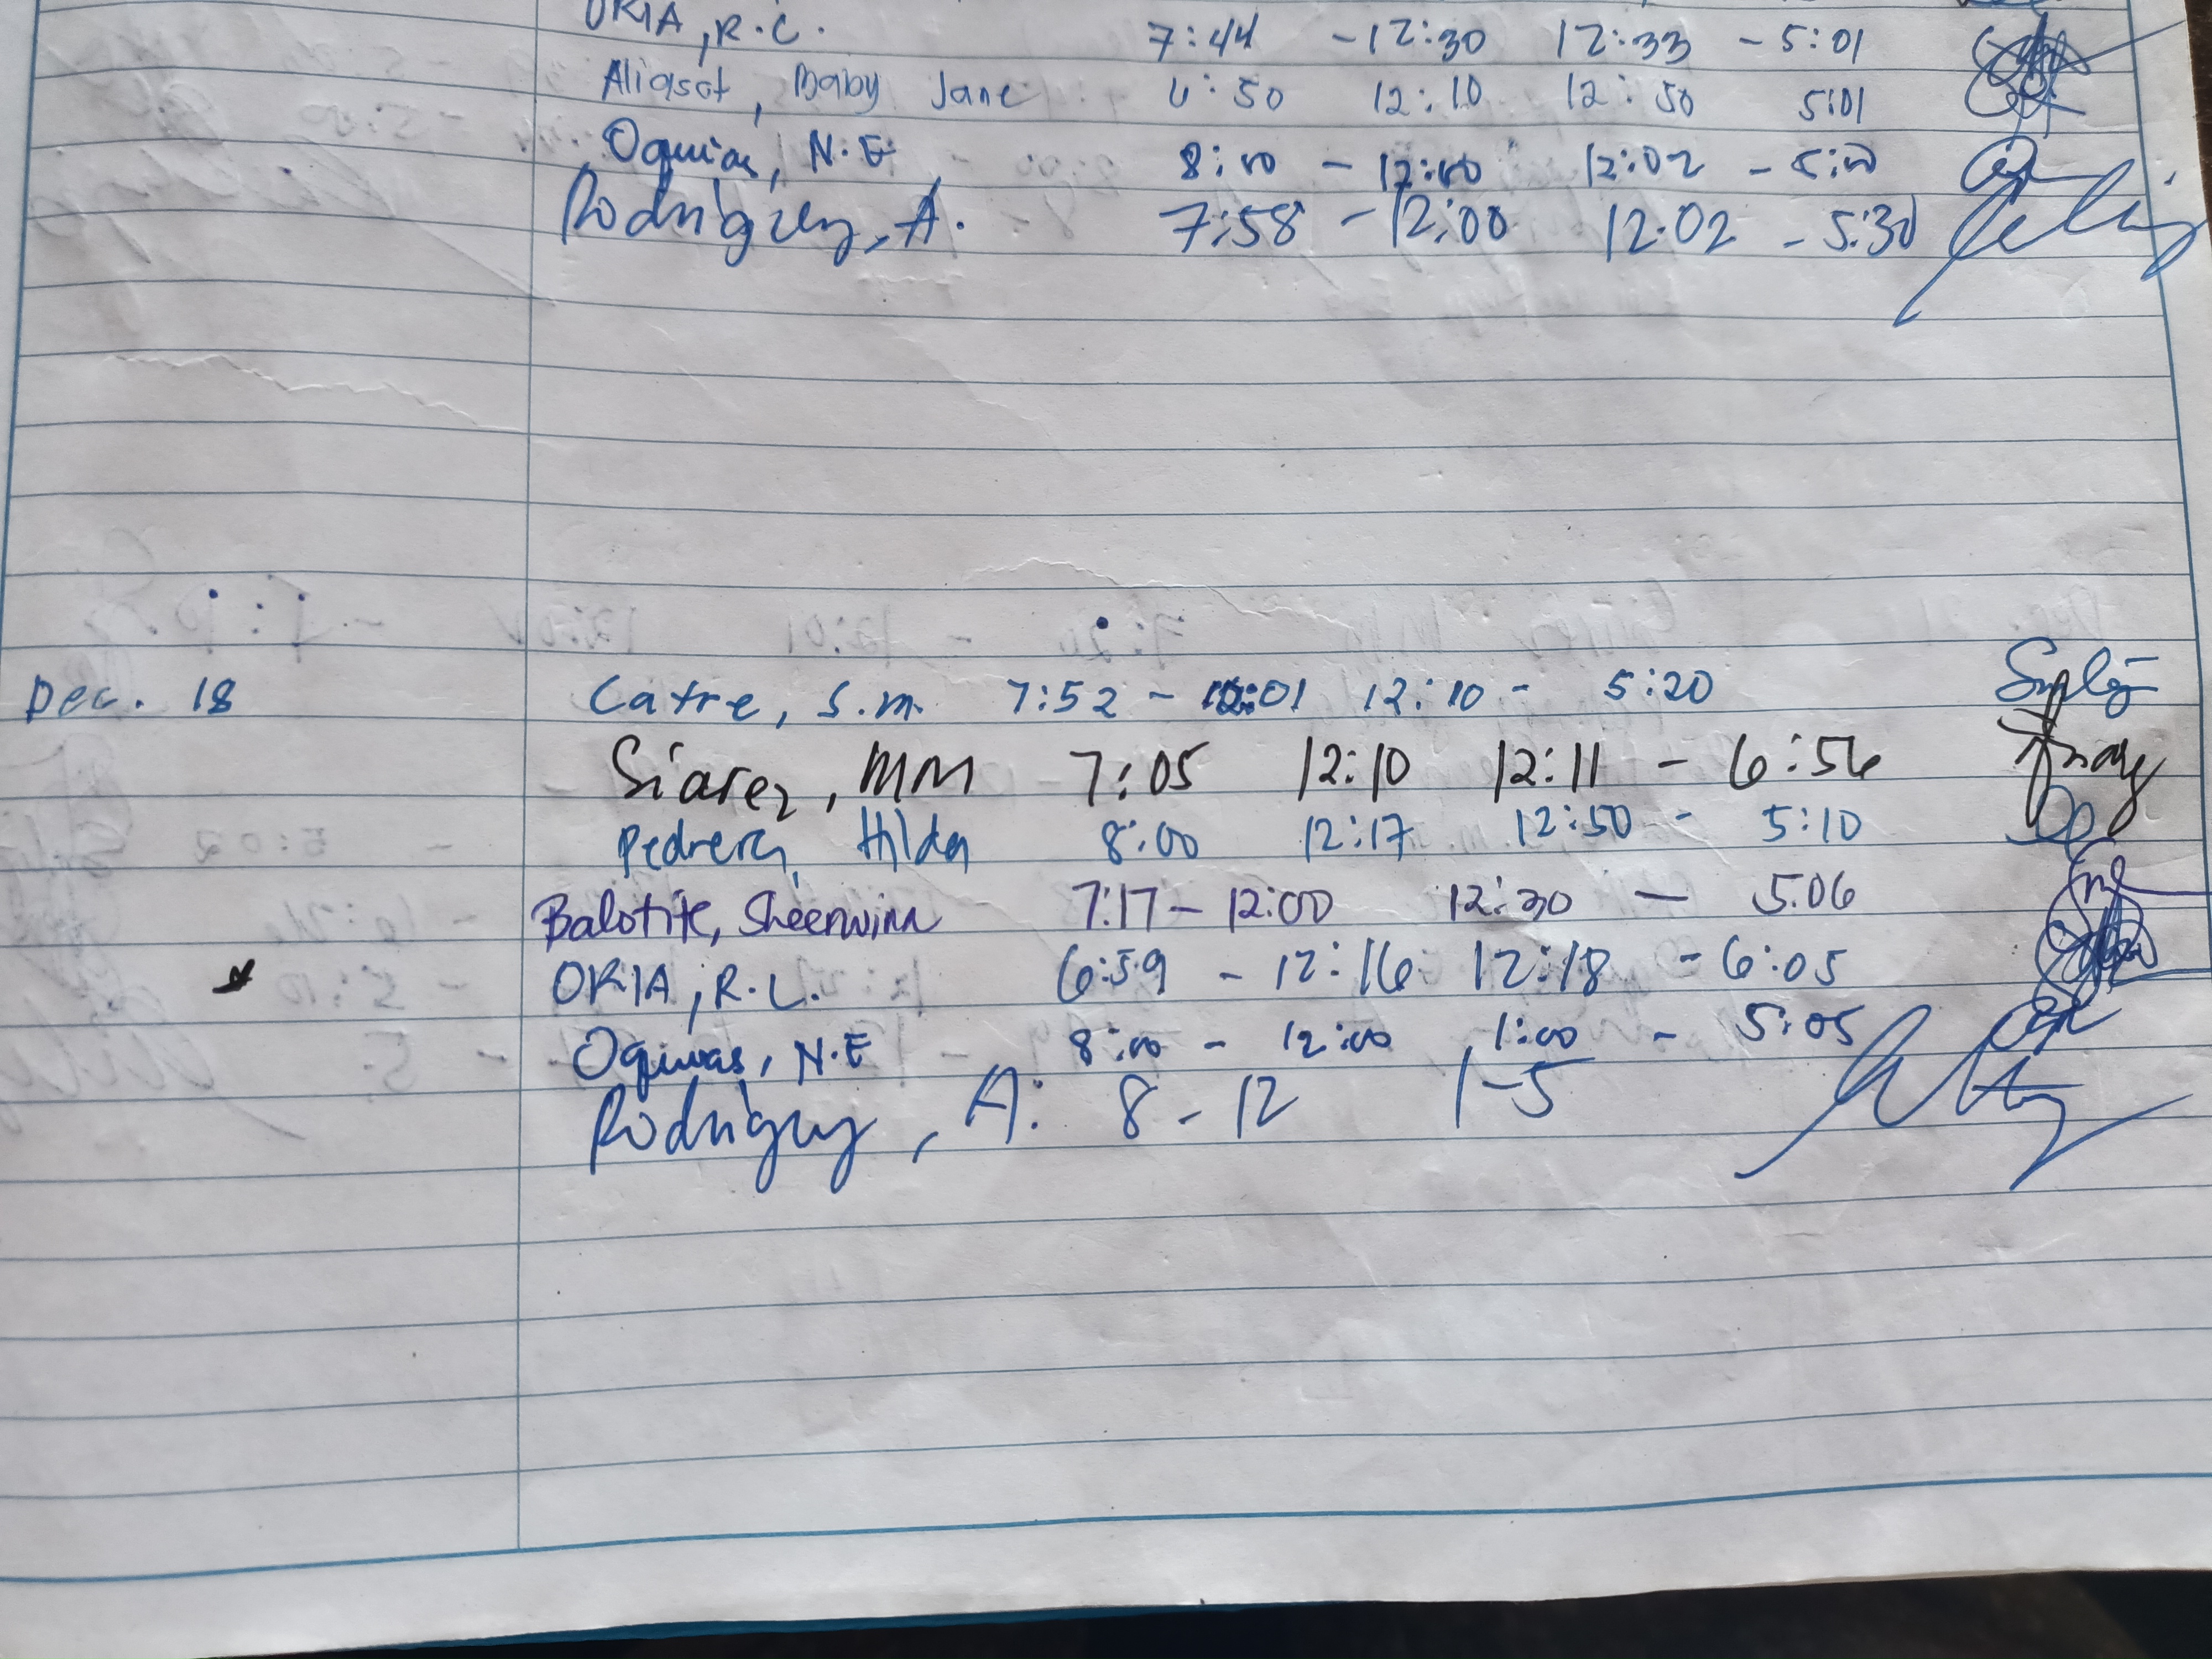 ORIA, R.C. 7:44 - 12:30 12:33 - 5:01
Aliasot, Baby Jane 6:50 12:10 12:50 5:01
Oquias, N.E 8:00 - 12:00 12:02 - 5:00
Rodriguez, A. 7:58 - 12:00 12:02 - 5:30
Dec. 18 Catre, S.M. 7:52 - 12:01 12:10 - 5:20
Siarez, MM 7:05 12:10 12:11 - 6:56
Pedrera, Hilda 8:00 12:17 12:50 - 5:10
Balotite, Sheenwinn 7:17 - 12:00 12:30 - 5:06
ORIA, R.L. 6:59 - 12:16 12:18 - 6:05
Oquias, N.E 8:00 - 12:00 1:00 - 5:05
Rodriguez, A. 8 - 12 1-5